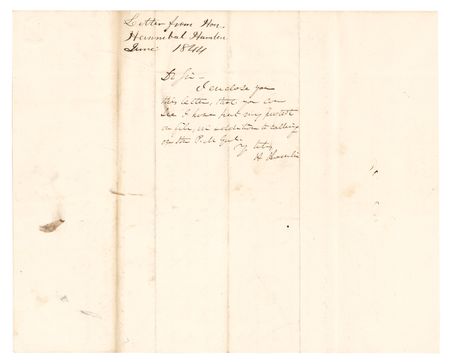 Letter from Hon.
Hannibal Hamlin
June 1844
Dr Sir –
I enclose you
this letter, that you can
see I have put my
on file, in addition to calling
on the P. M. Genl.
H Hamlin